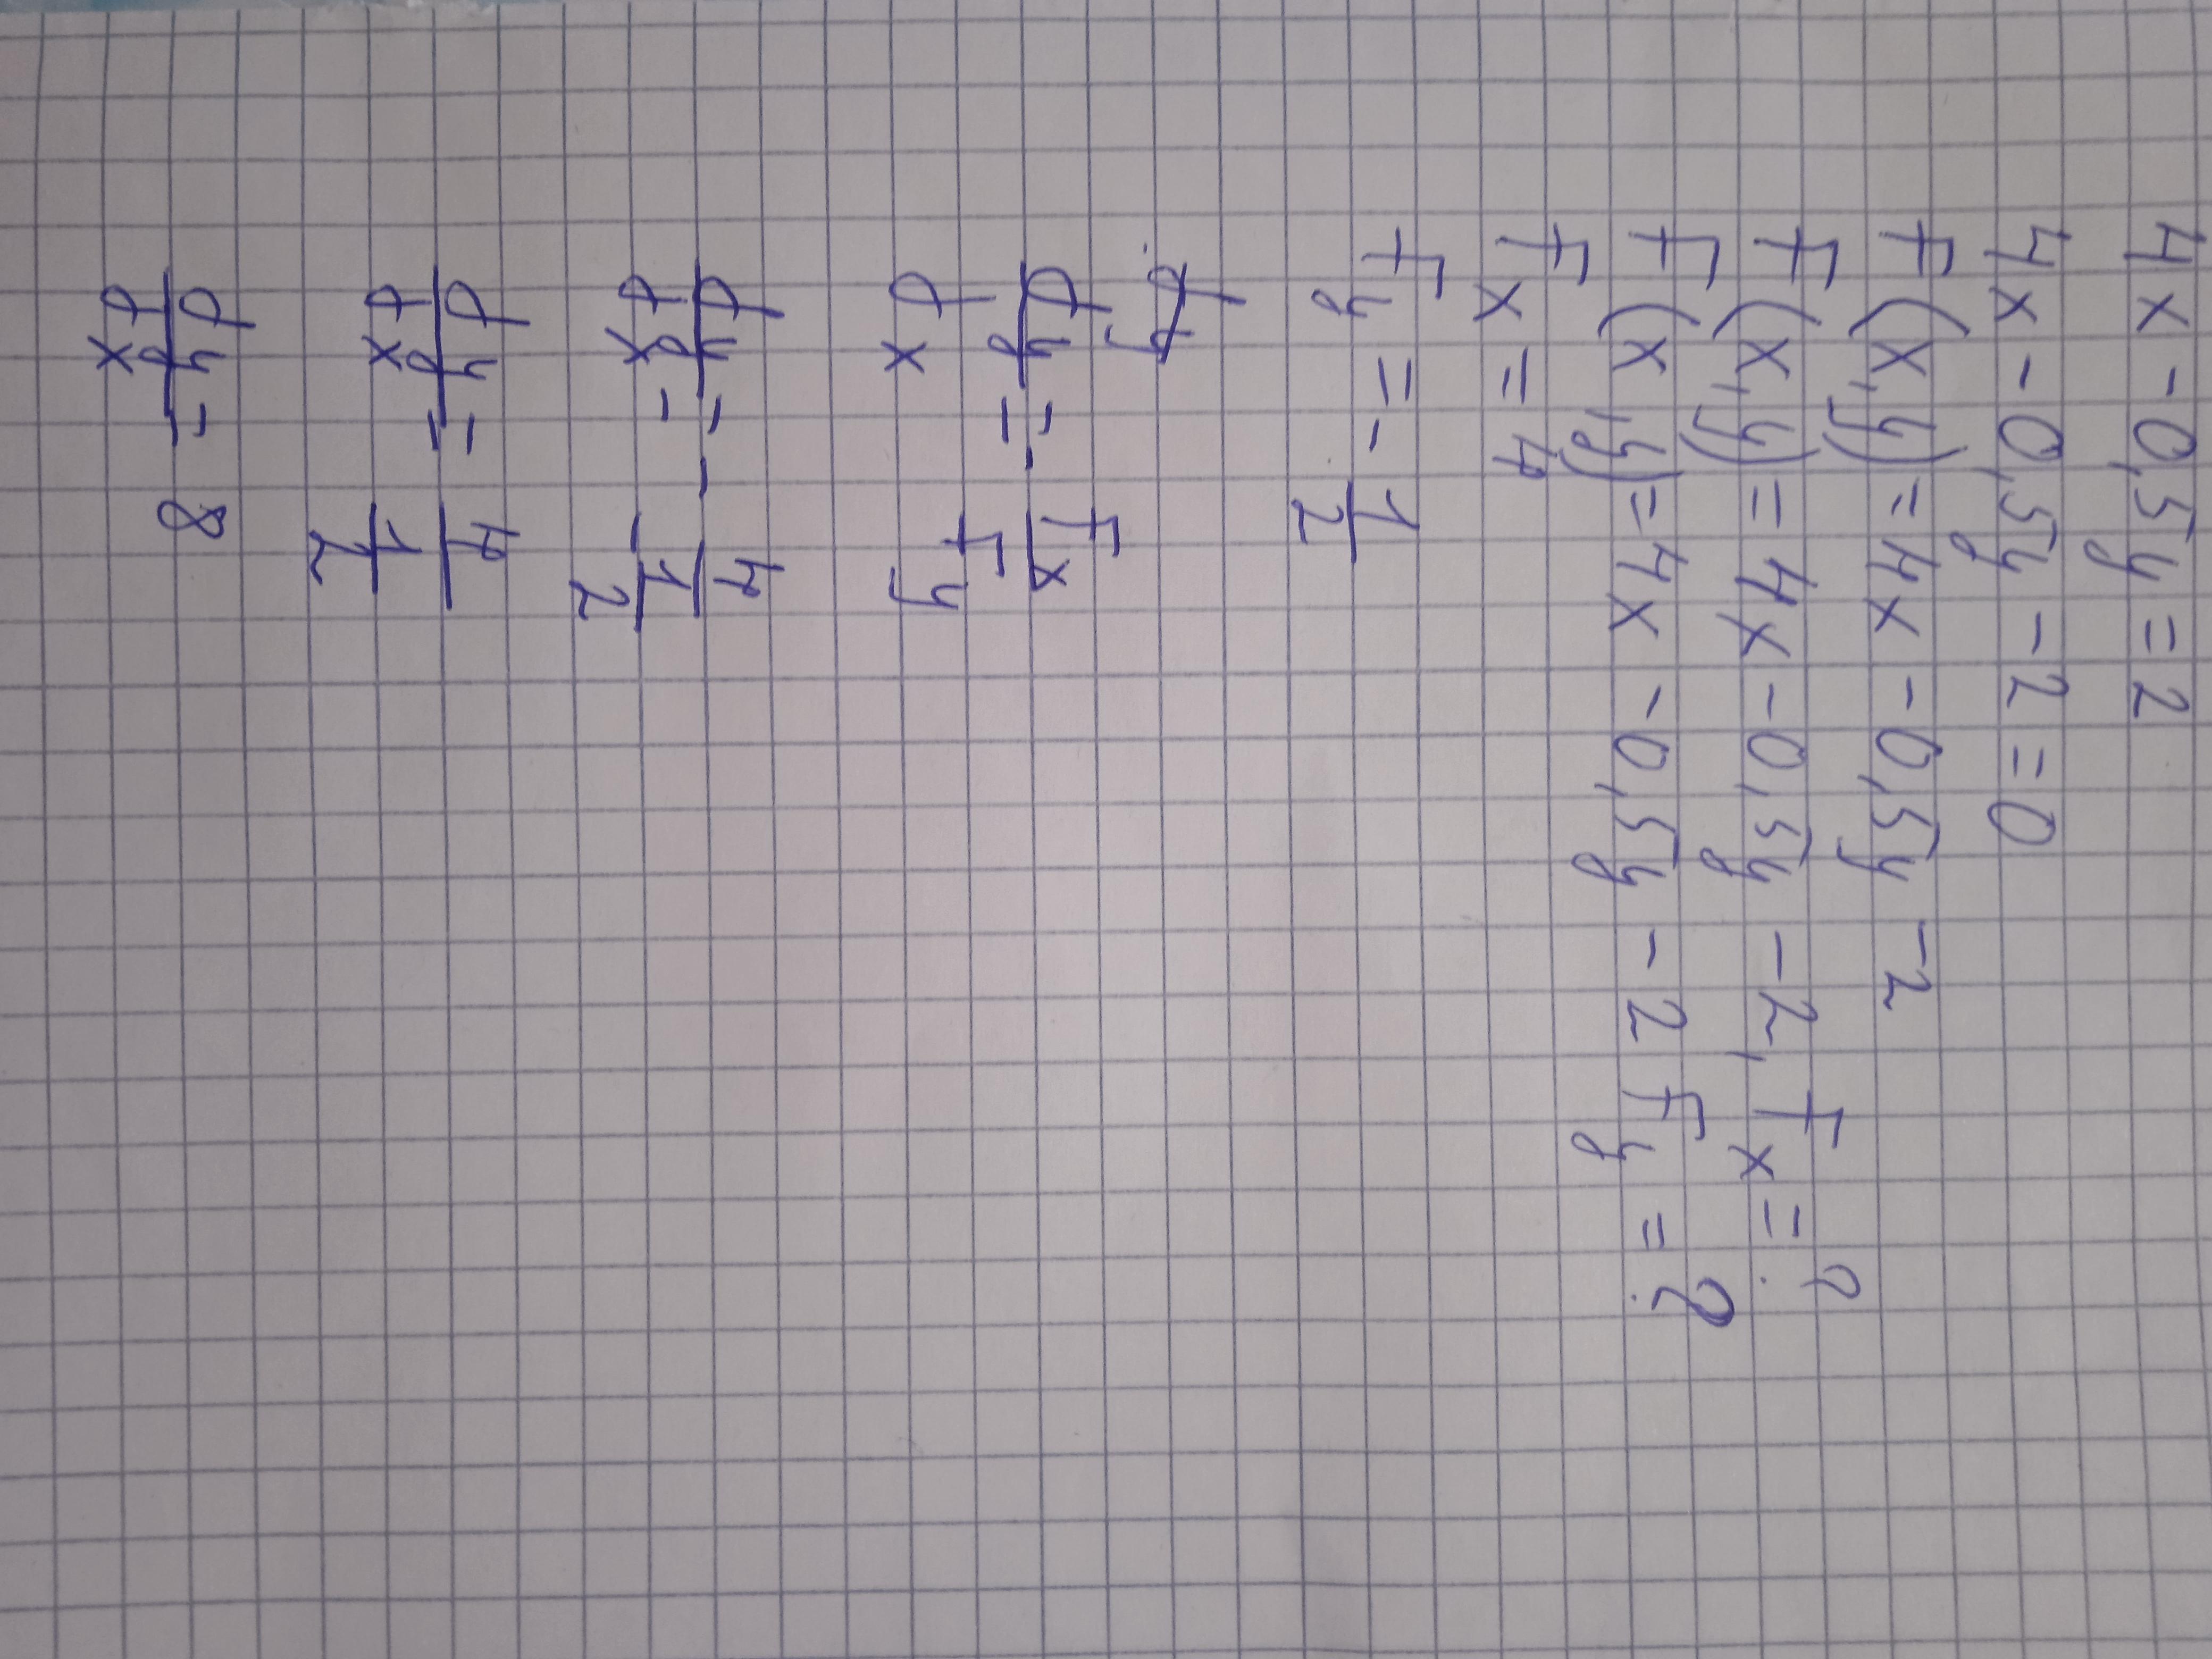 4x-0,5y=2
4x-0,5y-2=0
F(x,y)=4x-0,5y-2
F(x,y)=4x-0,5y-2, Fx=?
F(x,y)=4x-0,5y-2 Fy=?
Fx=4
Fy=-1/2
dy/dx=-Fx/Fy
dy/dx=-4/-1/2
dy/dx=4/1/2
dy/dx=8